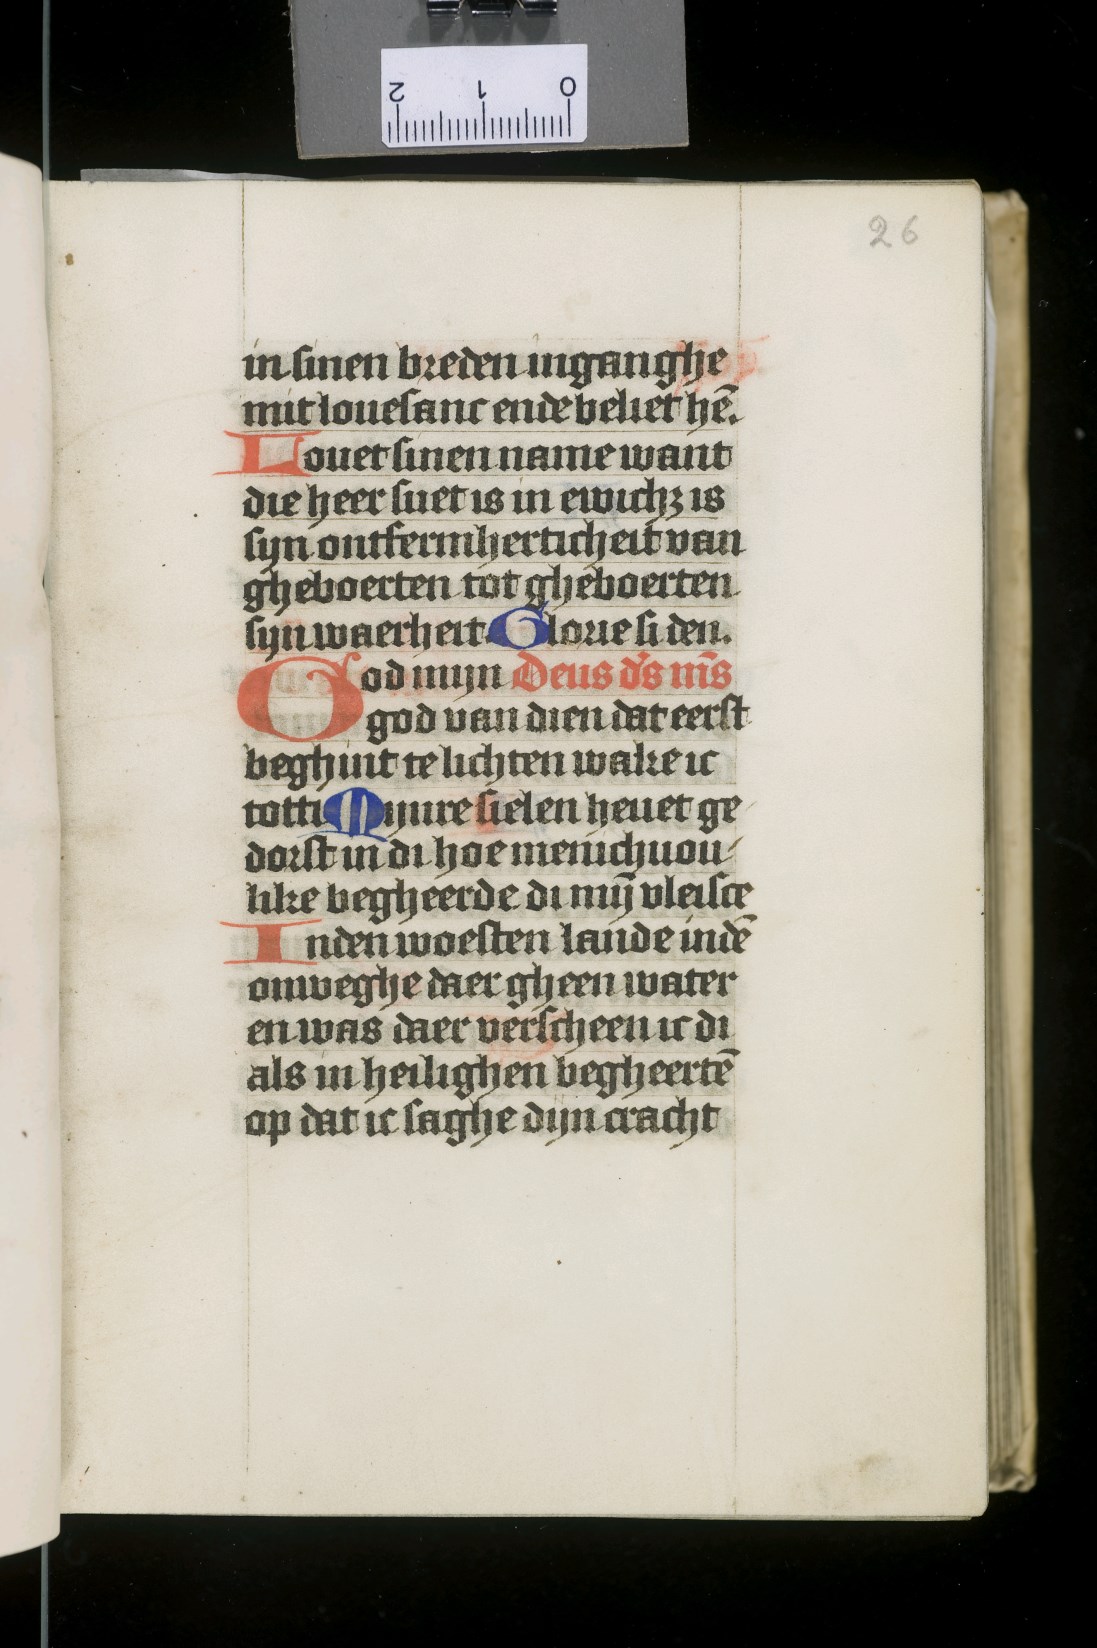 2 1 0
26
in sinen breden inganghe
mit louesanc ende beliet hē.
Louet sinen name want
die heer suet is in ewichʒ is
syn ontfermherticheit van
gheboerten tot gheboerten
syn waerheit. Glorie si den.
God mijn Deus d's m̄s
god van dien dat eerst
beghint te lichten wake ic
totti Mijnre sielen heuet ge
dorst in di hoe menichuou
like begheerde di mij̄ vleisce
In den woesten lande indē
onweghe daer gheen water
en was daer verscheen ic di
als in heilighen begheertē
op dat ic saghe dijn cracht